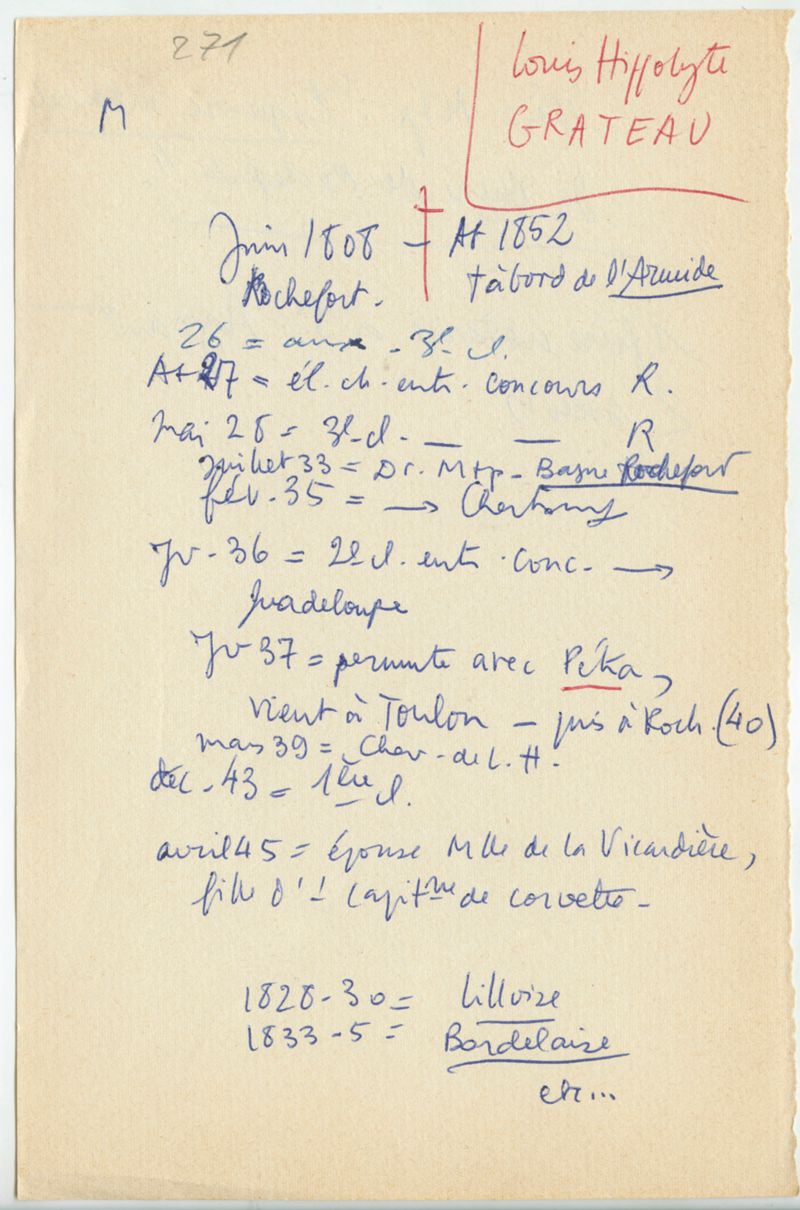 271
M
Louis Hippolyte
GRATEAU
Juin 1808 – At 1852
Rochefort. † à bord de l'Armide
26 = aux. 3e cl.
At 27 = él. ch. ent. concours R.
mai 28 = 3e cl. — — R
juillet 33 = Dr. Mtp – Bagne Rochefort
fév. 35 = → Cherbourg
Jv. 36 = 2e cl. ent. conc. →
Guadeloupe
Jv 37 = permute avec Péka,
vient à Toulon – puis à Roch. (40)
mars 39 = Chev. de L. H.
déc. 43 = 1ère cl.
avril 45 = épouse Mlle de la Vicardière,
fille d'1 capitne de corvette –
1828-30 = Lilloise
1833-5 = Bordelaise
etc...